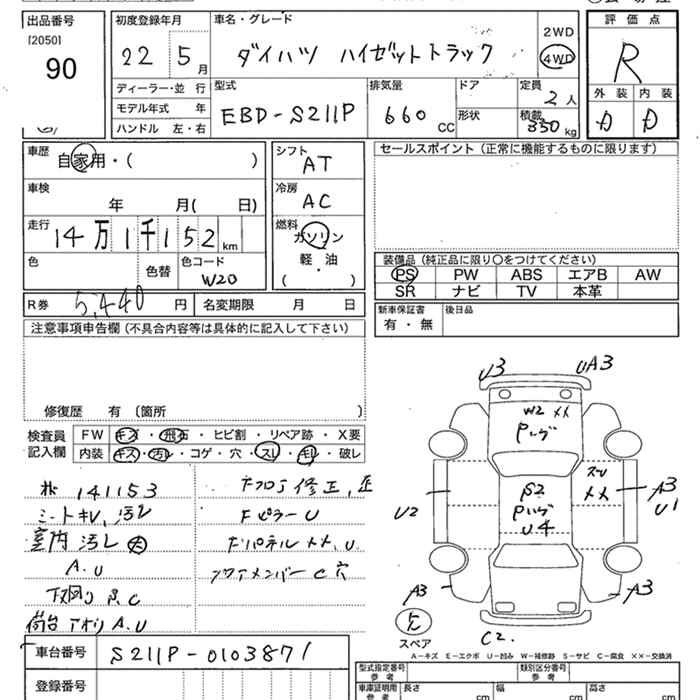 出品番号
[2050]
90
初度登録年月
22 5月
車名・グレード
ダイハツ ハイゼットトラック
2WD
4WD
評価点
R
ディーラー・並行
モデル年式 年
ハンドル 左・右
型式
EBD-S211P
排気量
660 CC
ドア
形状
定員
2人
積載
350kg
外装 内装
D D
車歴
自家用・( )
シフト
AT
セールスポイント (正常に機能するものに限ります)
車検
年 月( 日)
冷房
AC
走行
14万1千152km
燃料
ガソリン
軽・油
( )
色
色替
色コード
W20
装備品 (純正品に限り○をつけてください)
PS PW ABS エアB AW
SR ナビ TV 本革
R券 5,440円
名変期限 月 日
新車保証書
有・無
後日品
注意事項申告欄 (不具合内容等は具体的に記入して下さい)
修復歴 有 〔箇所 〕
検査員
記入欄
FW キズ・飛石・ヒビ割・リペア跡・X要
内装 キズ・汚レ・コゲ・穴・スレ・キレ・破レ
141153
シートキレ,汚レ
室内汚レ 大
A.U
下廻り P.C
荷台アオリ A.U
修正
FピラーU
FパネルXX,U
C穴
U3 UA3
W2 XX
Pハゲ
S2
Pハゲ
U4
XX
U2
A3
U1
A3
A3
C2.
スペア
A-キズ E-エクボ U-凹み W-補修跡 S-サビ C-腐食 XX-交換済
車台番号
S211P-0103871
登録番号
型式指定番号
参考
類別区分番号
参考
車庫証明用
参考
長さ cm
幅 cm
高さ cm